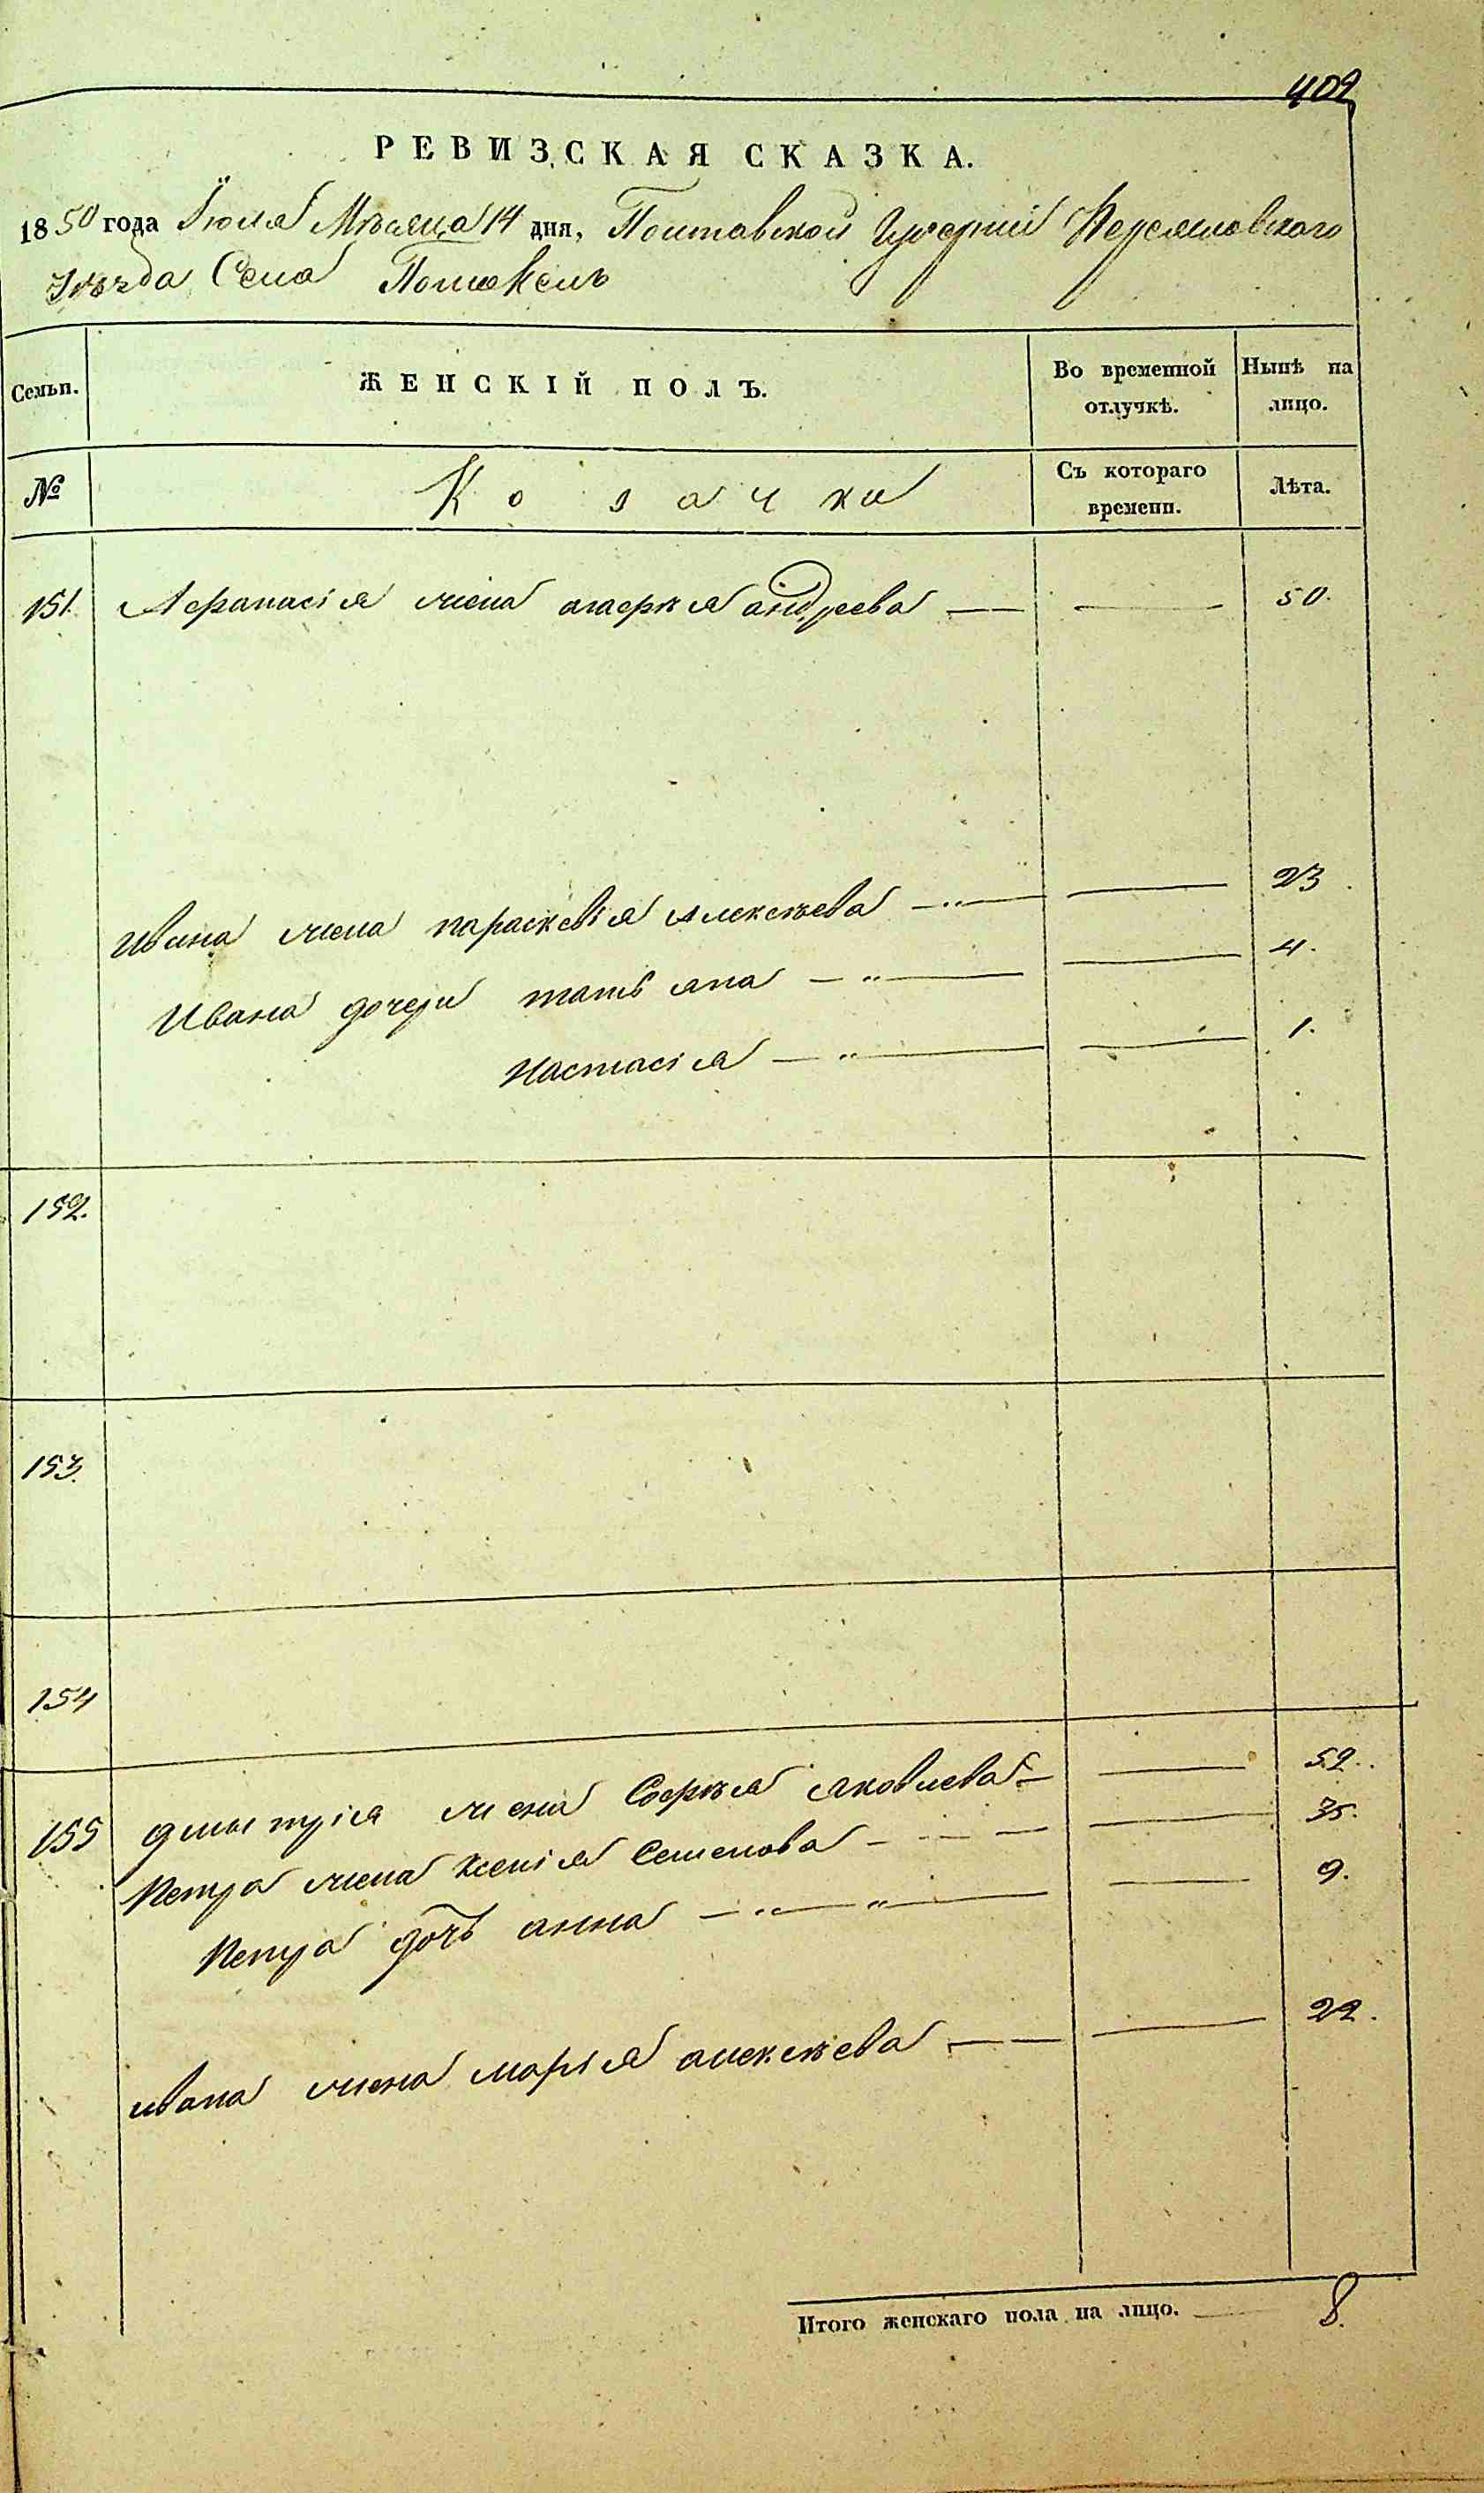 402
РЕВИЗСКАЯ СКАЗКА.
1850 года Іюля Мѣсяца 14 дня, Полтавской Губерніи Переяславского
Уѣзда Села
Семьи. ЖЕНСКІЙ ПОЛЪ. Во временной отлучкѣ. Нынѣ на лицо.
№ Козачки Съ котораго времени. Лѣта.
151. Афанасія жена андреева — — 50.
Ивана жена параскевія Алексѣева — — 23.
Ивана дочери татьяна — — 4.
Настасія — — 1.
152.
153.
154
155 дмытрія жена Софія яковлева — — 52.
Петра жена Ксенія Семенова — — 35.
Петра дочь анна — — 9.
ивана жена марія алексѣева — — 22.
Итого женскаго пола на лицо. — 8.